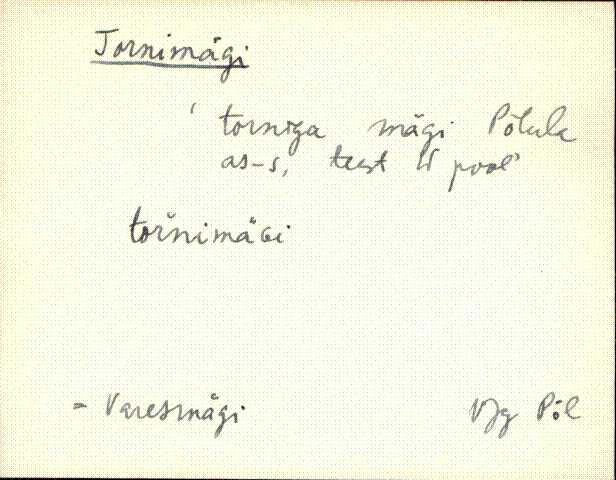 Tornimägi
‘torniga mägi Põlula
as-s, teest W pool’
tornimäGi
= Varesmägi
VJg Põl